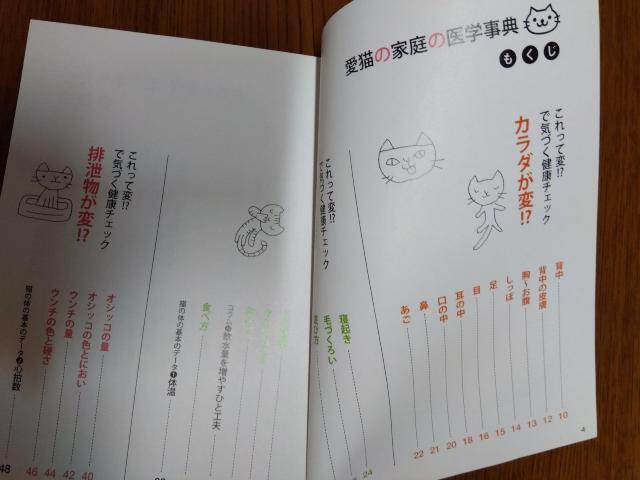 愛猫の家庭の医学事典
もくじ
これって変!?
で気づく健康チェック
カラダが変!?
背中 10
背中の皮膚 12
胸〜お腹 13
しっぽ 14
足 15
目 16
耳の中 18
口の中 20
鼻 21
あご 22
これって変!?
で気づく健康チェック
寝起き 24
毛づくろい
食べ方
コラム❶飲水量を増やすひと工夫
猫の体の基本のデータ❶体温
これって変!?
で気づく健康チェック
排泄物が変!?
オシッコの量 40
オシッコの色とにおい 42
ウンチの量 44
ウンチの色と硬さ 46
猫の体の基本のデータ❷心拍数 48
4